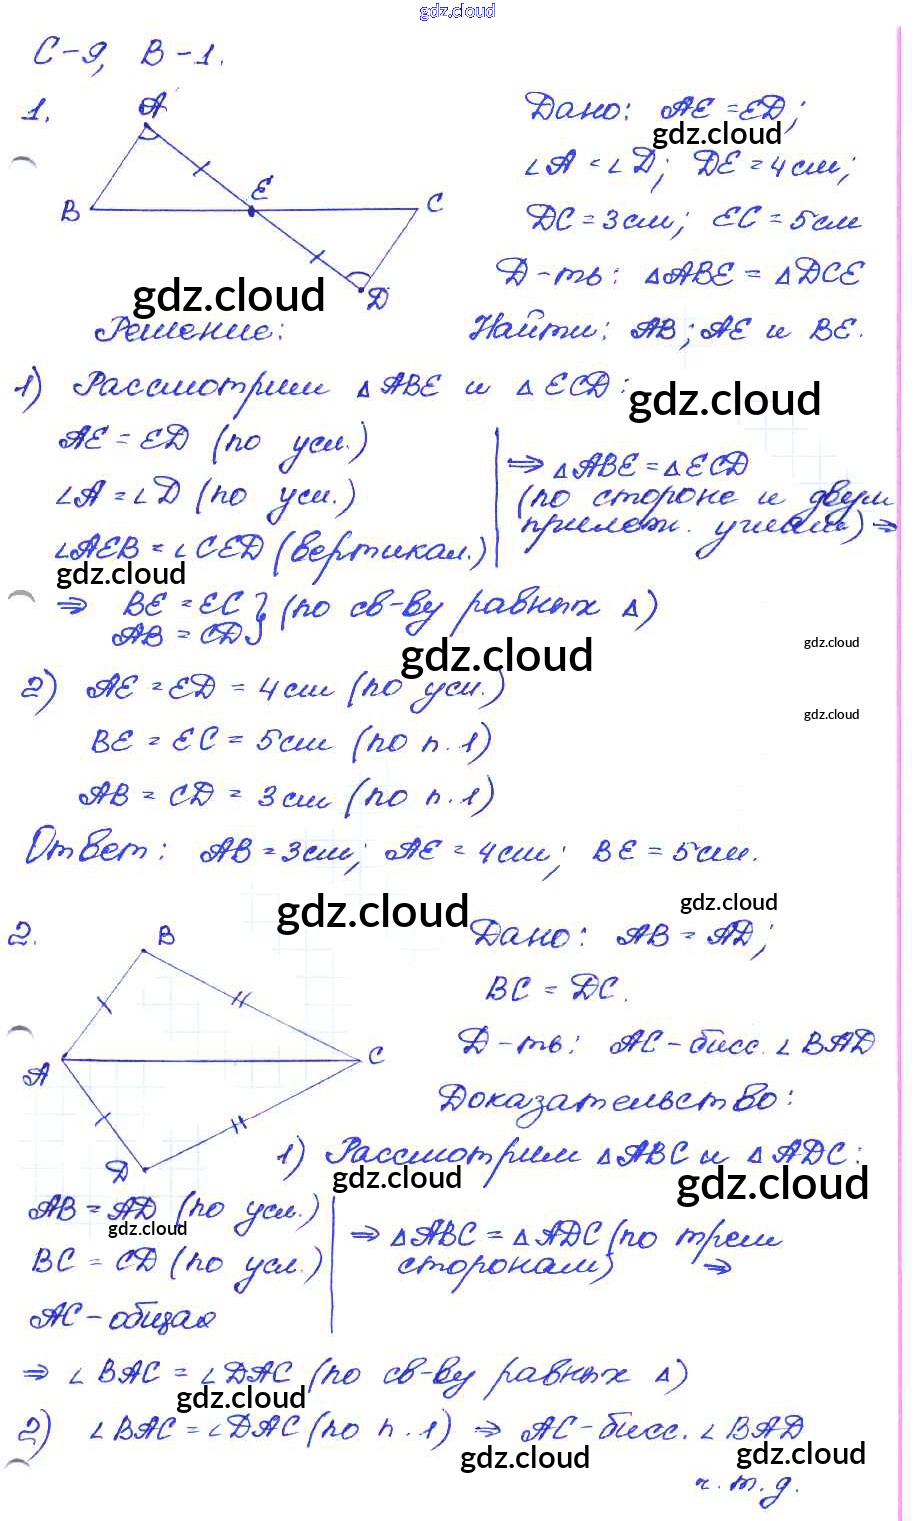 gdz.cloud
С-9, В-1.
1.
A
B
E
C
D
Дано: AE = ED;
gdz.cloud
∠A = ∠D; DE = 4 см;
DC = 3 см; EC = 5 см
Д-ть: △ABE = △DCE
gdz.cloud
Решение:
Найти: AB; AE и BE.
1) Рассмотрим △ABE и △ECD:
gdz.cloud
AE = ED (по усл.)
∠A = ∠D (по усл.)
∠AEB = ∠CED (вертикал.)
⇒ △ABE = △ECD
(по стороне и двум
прилеж. углам) ⇒
gdz.cloud
⇒ BE = EC } (по св-ву равных △)
AB = CD
gdz.cloud
gdz.cloud
2) AE = ED = 4 см (по усл.)
gdz.cloud
BE = EC = 5 см (по п. 1)
AB = CD = 3 см (по п. 1)
Ответ: AB = 3 см; AE = 4 см; BE = 5 см.
gdz.cloud
gdz.cloud
2.
B
A
C
D
Дано: AB = AD;
BC = DC.
Д-ть: AC - бисс. ∠BAD
Доказательство:
1) Рассмотрим △ABC и △ADC:
gdz.cloud
gdz.cloud
AB = AD (по усл.)
gdz.cloud
BC = CD (по усл.)
AC - общая
⇒ △ABC = △ADC (по трем
сторонам) ⇒
⇒ ∠BAC = ∠DAC (по св-ву равных △)
gdz.cloud
2) ∠BAC = ∠DAC (по п. 1) ⇒ AC - бисс. ∠BAD
gdz.cloud
gdz.cloud
ч.т.д.